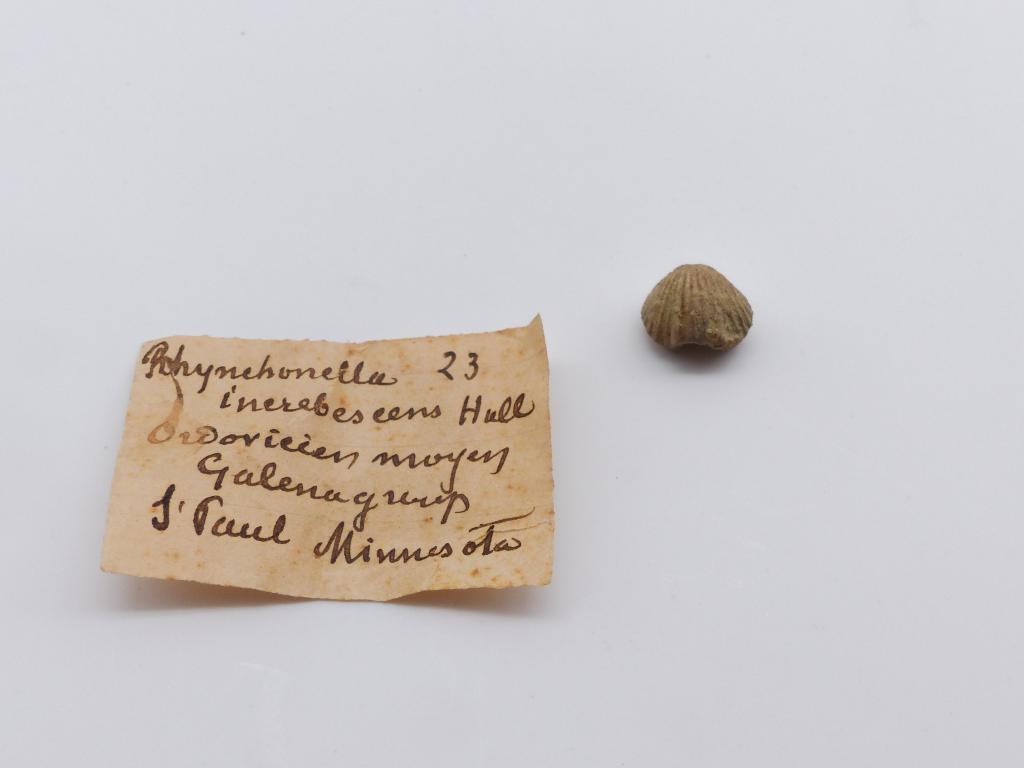 Rhynchonella 23
increbescens Hall
Ordovicien moyen
Galena group
St Paul Minnesota